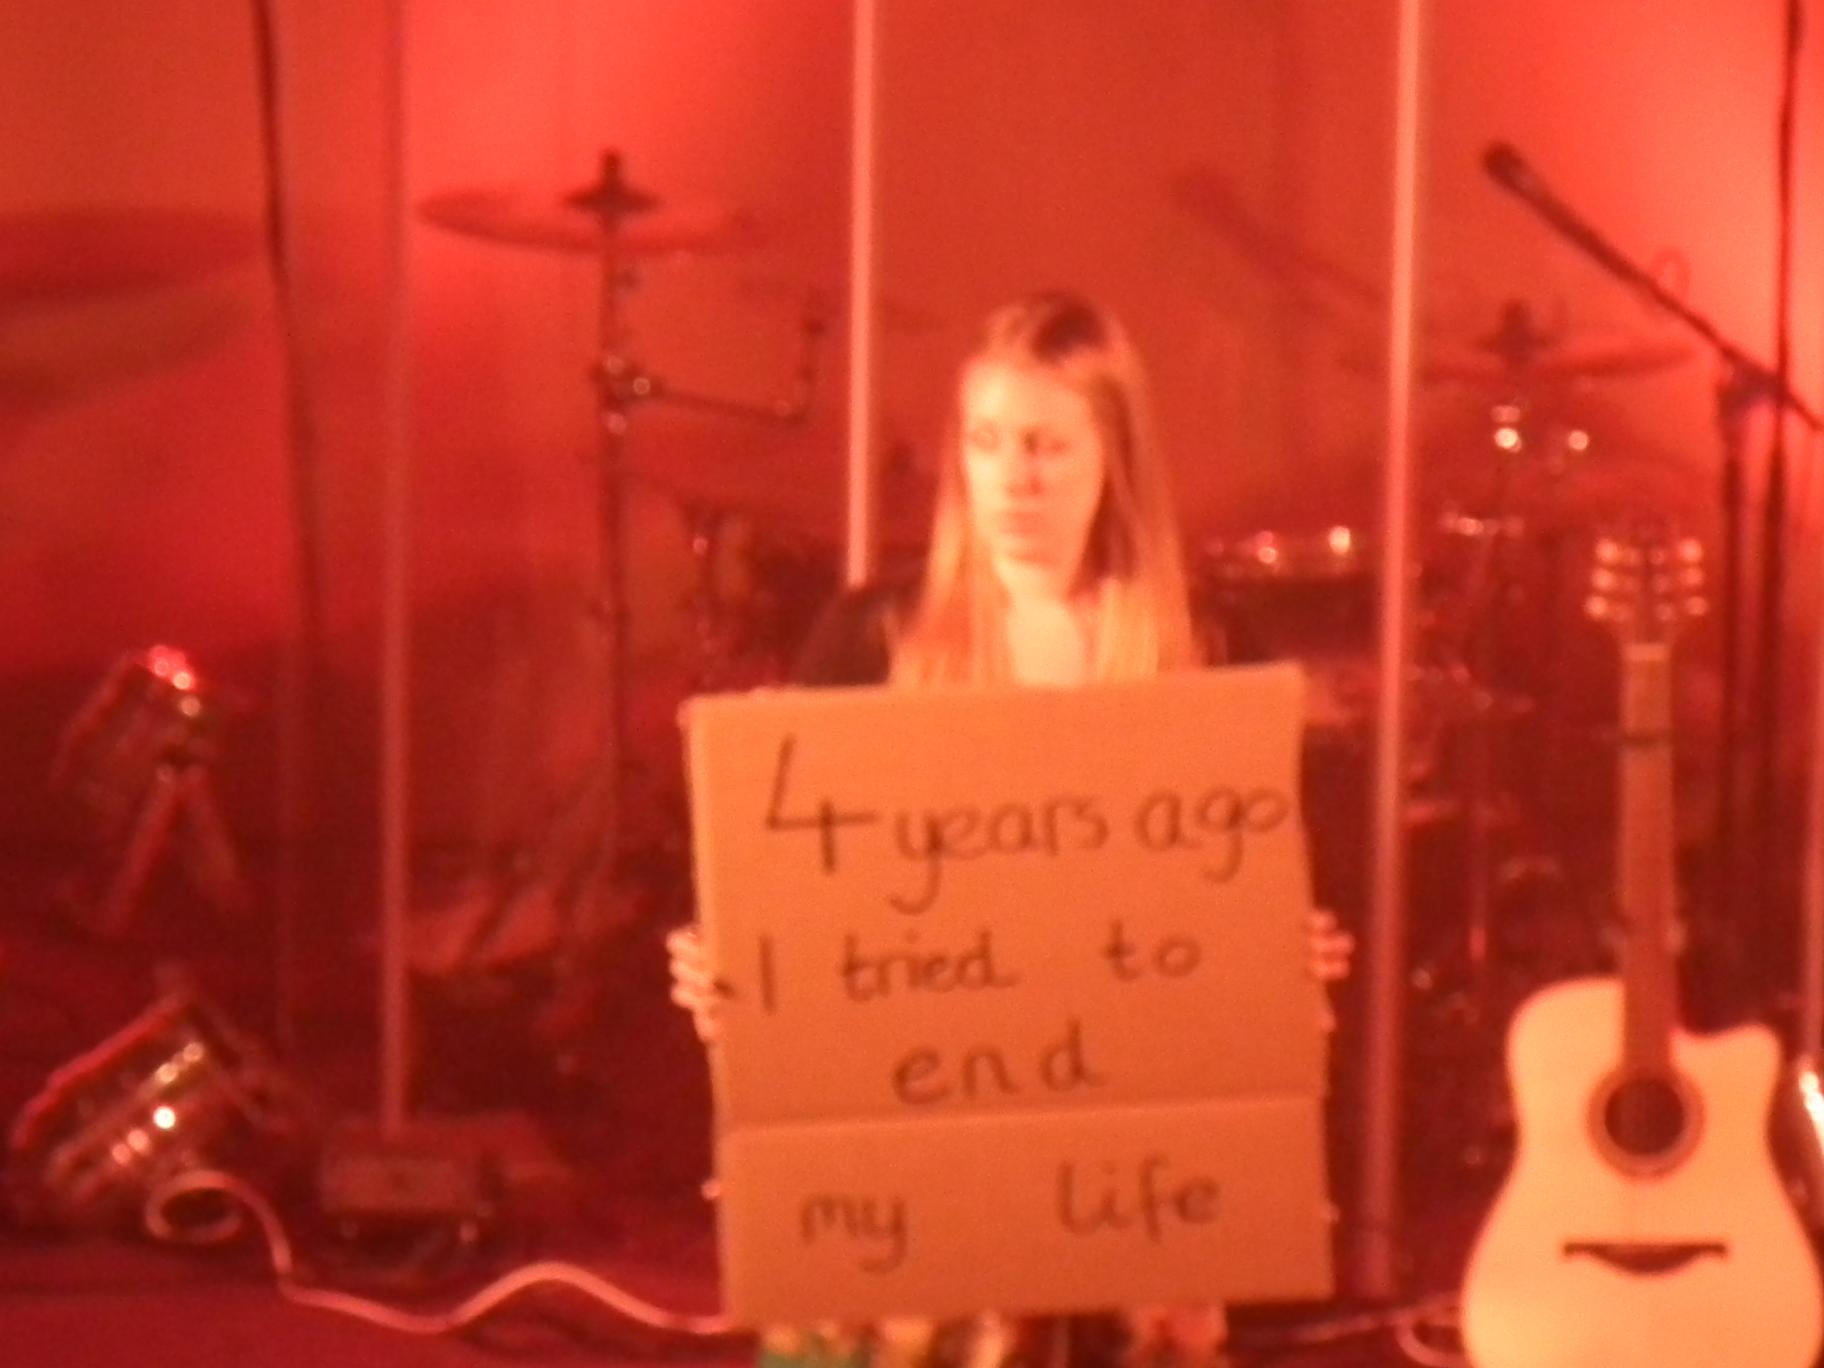 4 years ago
I tried to
end
my life